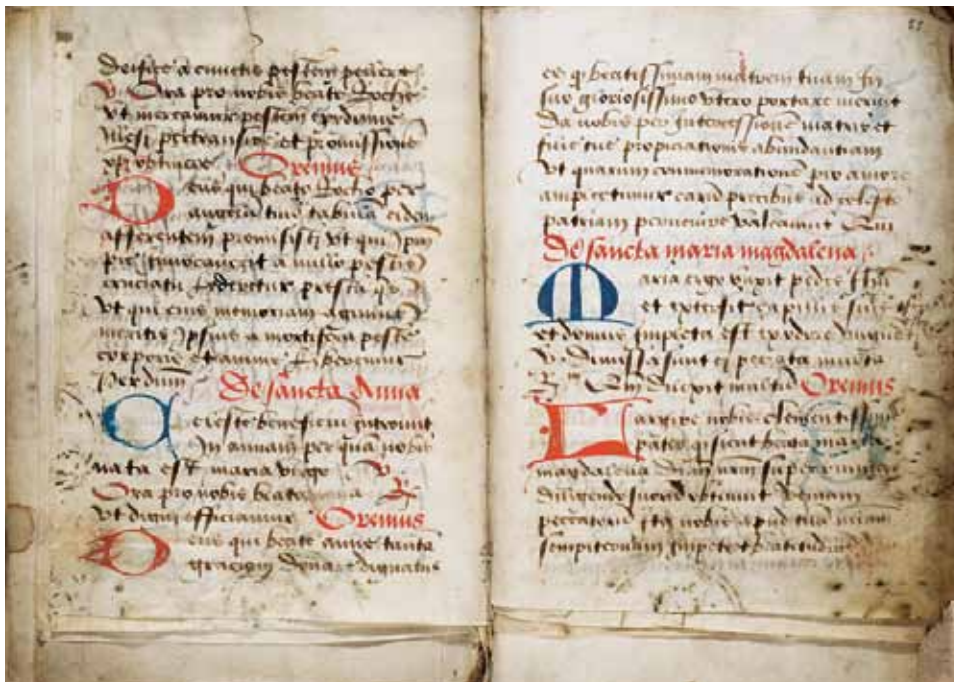 deifice a cunctis pestem pellere
V. Ora pro nobis beate Roche
vt mereamur pestem
illesi pertransire et promissione
xpi obtinere Oremus
Deus qui beato Rocho per
angelum tuū tabulā eidem
afferentem promisisti vt qui ipm
pie inuocauerit a nullo pestis
cruciatu lederetur presta qs
vt qui eius memoriam agimus
meritis ipsius a mortifera peste
corporis et anime liberemur
Per dnm De sancta Anna
Celeste beneficiū introiuit
In annam per quā nobis
nata est maria virgo V
Ora pro nobis beata anna R
vt digni efficiamur Oremus
Deus qui beate anne tantā
graciam donare dignatus
es beatissimam matrem tuam in
suo gloriosissimo vtero portare meruit
Da nobis per intercessionē matris et
filie tue propiciationis abundantiam
Vt quarum commemorationē pio amore
amplectimur earū precibus ad celestē
patriam peruenire valeamus Qui
De sancta maria magdalena
Maria ergo vnxit pedes Ihu
et extersit capillis suis
et domus impleta est ex odore
V. Dimissa sunt ei peccata multa
R. Qm dilexit multū Oremus
Largire nobis clementissime
pater q sicut beata maria
magdalena dnm nrm super omnia
diligendo suorū obtinuit veniam
peccatorū ita nobis apud tuā
sempiternam impetret beatitudinē